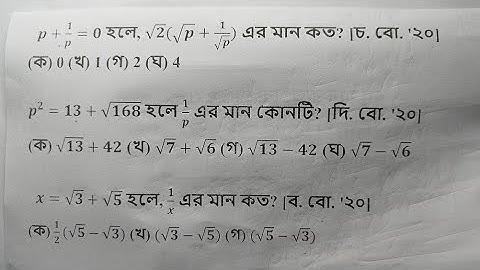 p + 1/p = 0 হলে, √2(√p + 1/√p) এর মান কত? [চ. বো. '২০]
(ক) 0 (খ) 1 (গ) 2 (ঘ) 4
p² = 13 + √168 হলে 1/p এর মান কোনটি? [দি. বো. '২০]
(ক) √13 + 42 (খ) √7 + √6 (গ) √13 − 42 (ঘ) √7 − √6
x = √3 + √5 হলে, 1/x এর মান কত? [ব. বো. '২০]
(ক) 1/2(√5 − √3) (খ) (√3 − √5) (গ) (√5 − √3)